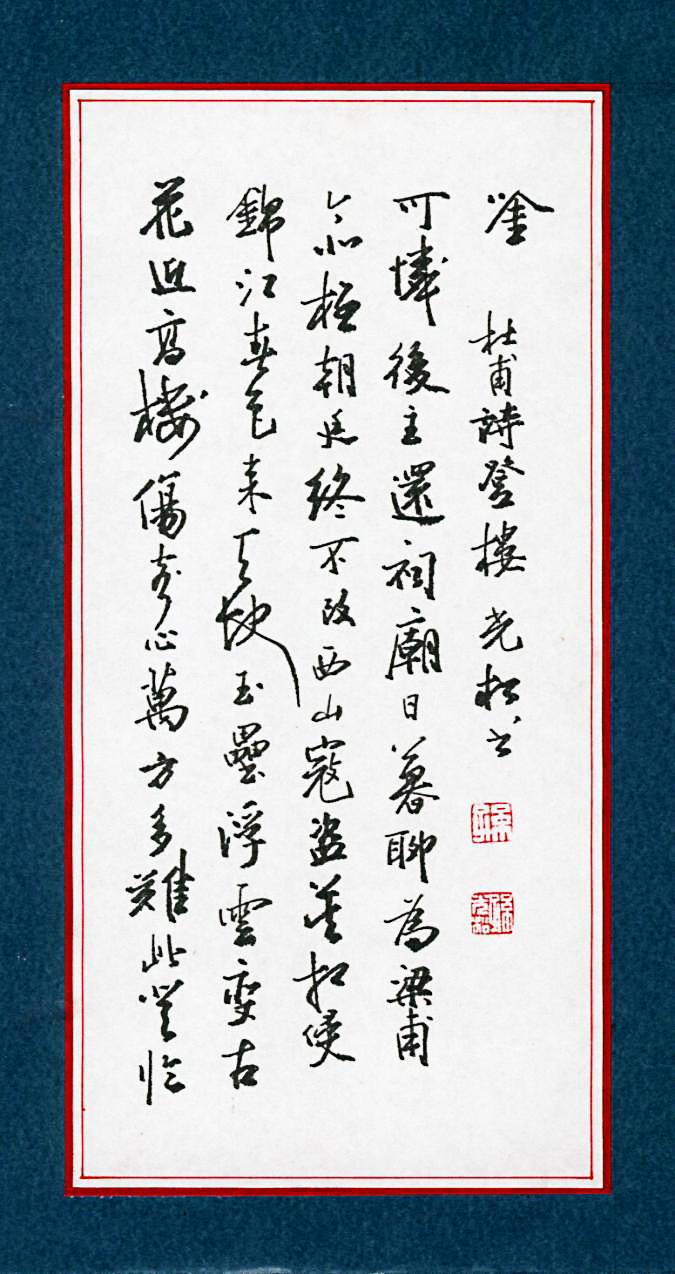 花近高樓傷客心萬方多難此登臨
錦江春色来天地玉壘浮雲變古
今北極朝廷終不改西山寇盜莫相侵
可憐後主還祠廟日暮聊為梁甫
唫 杜甫詩登樓 尧松书